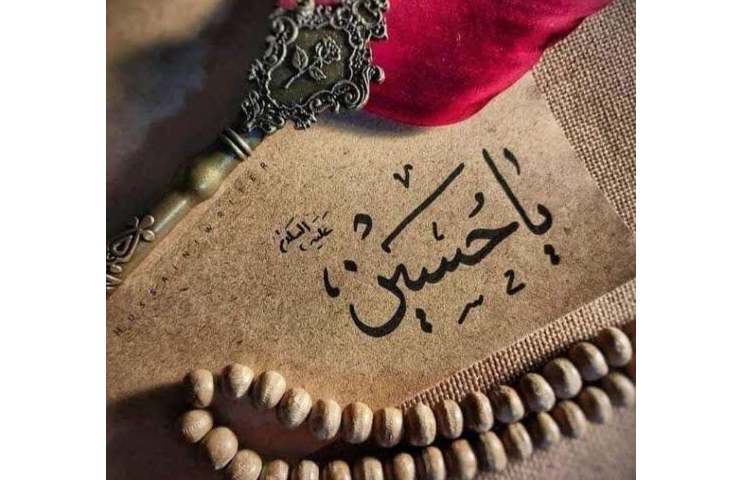 يا حُسَيْن
عَلَيهِ السَّلامُ
HUSSAINIWRITER